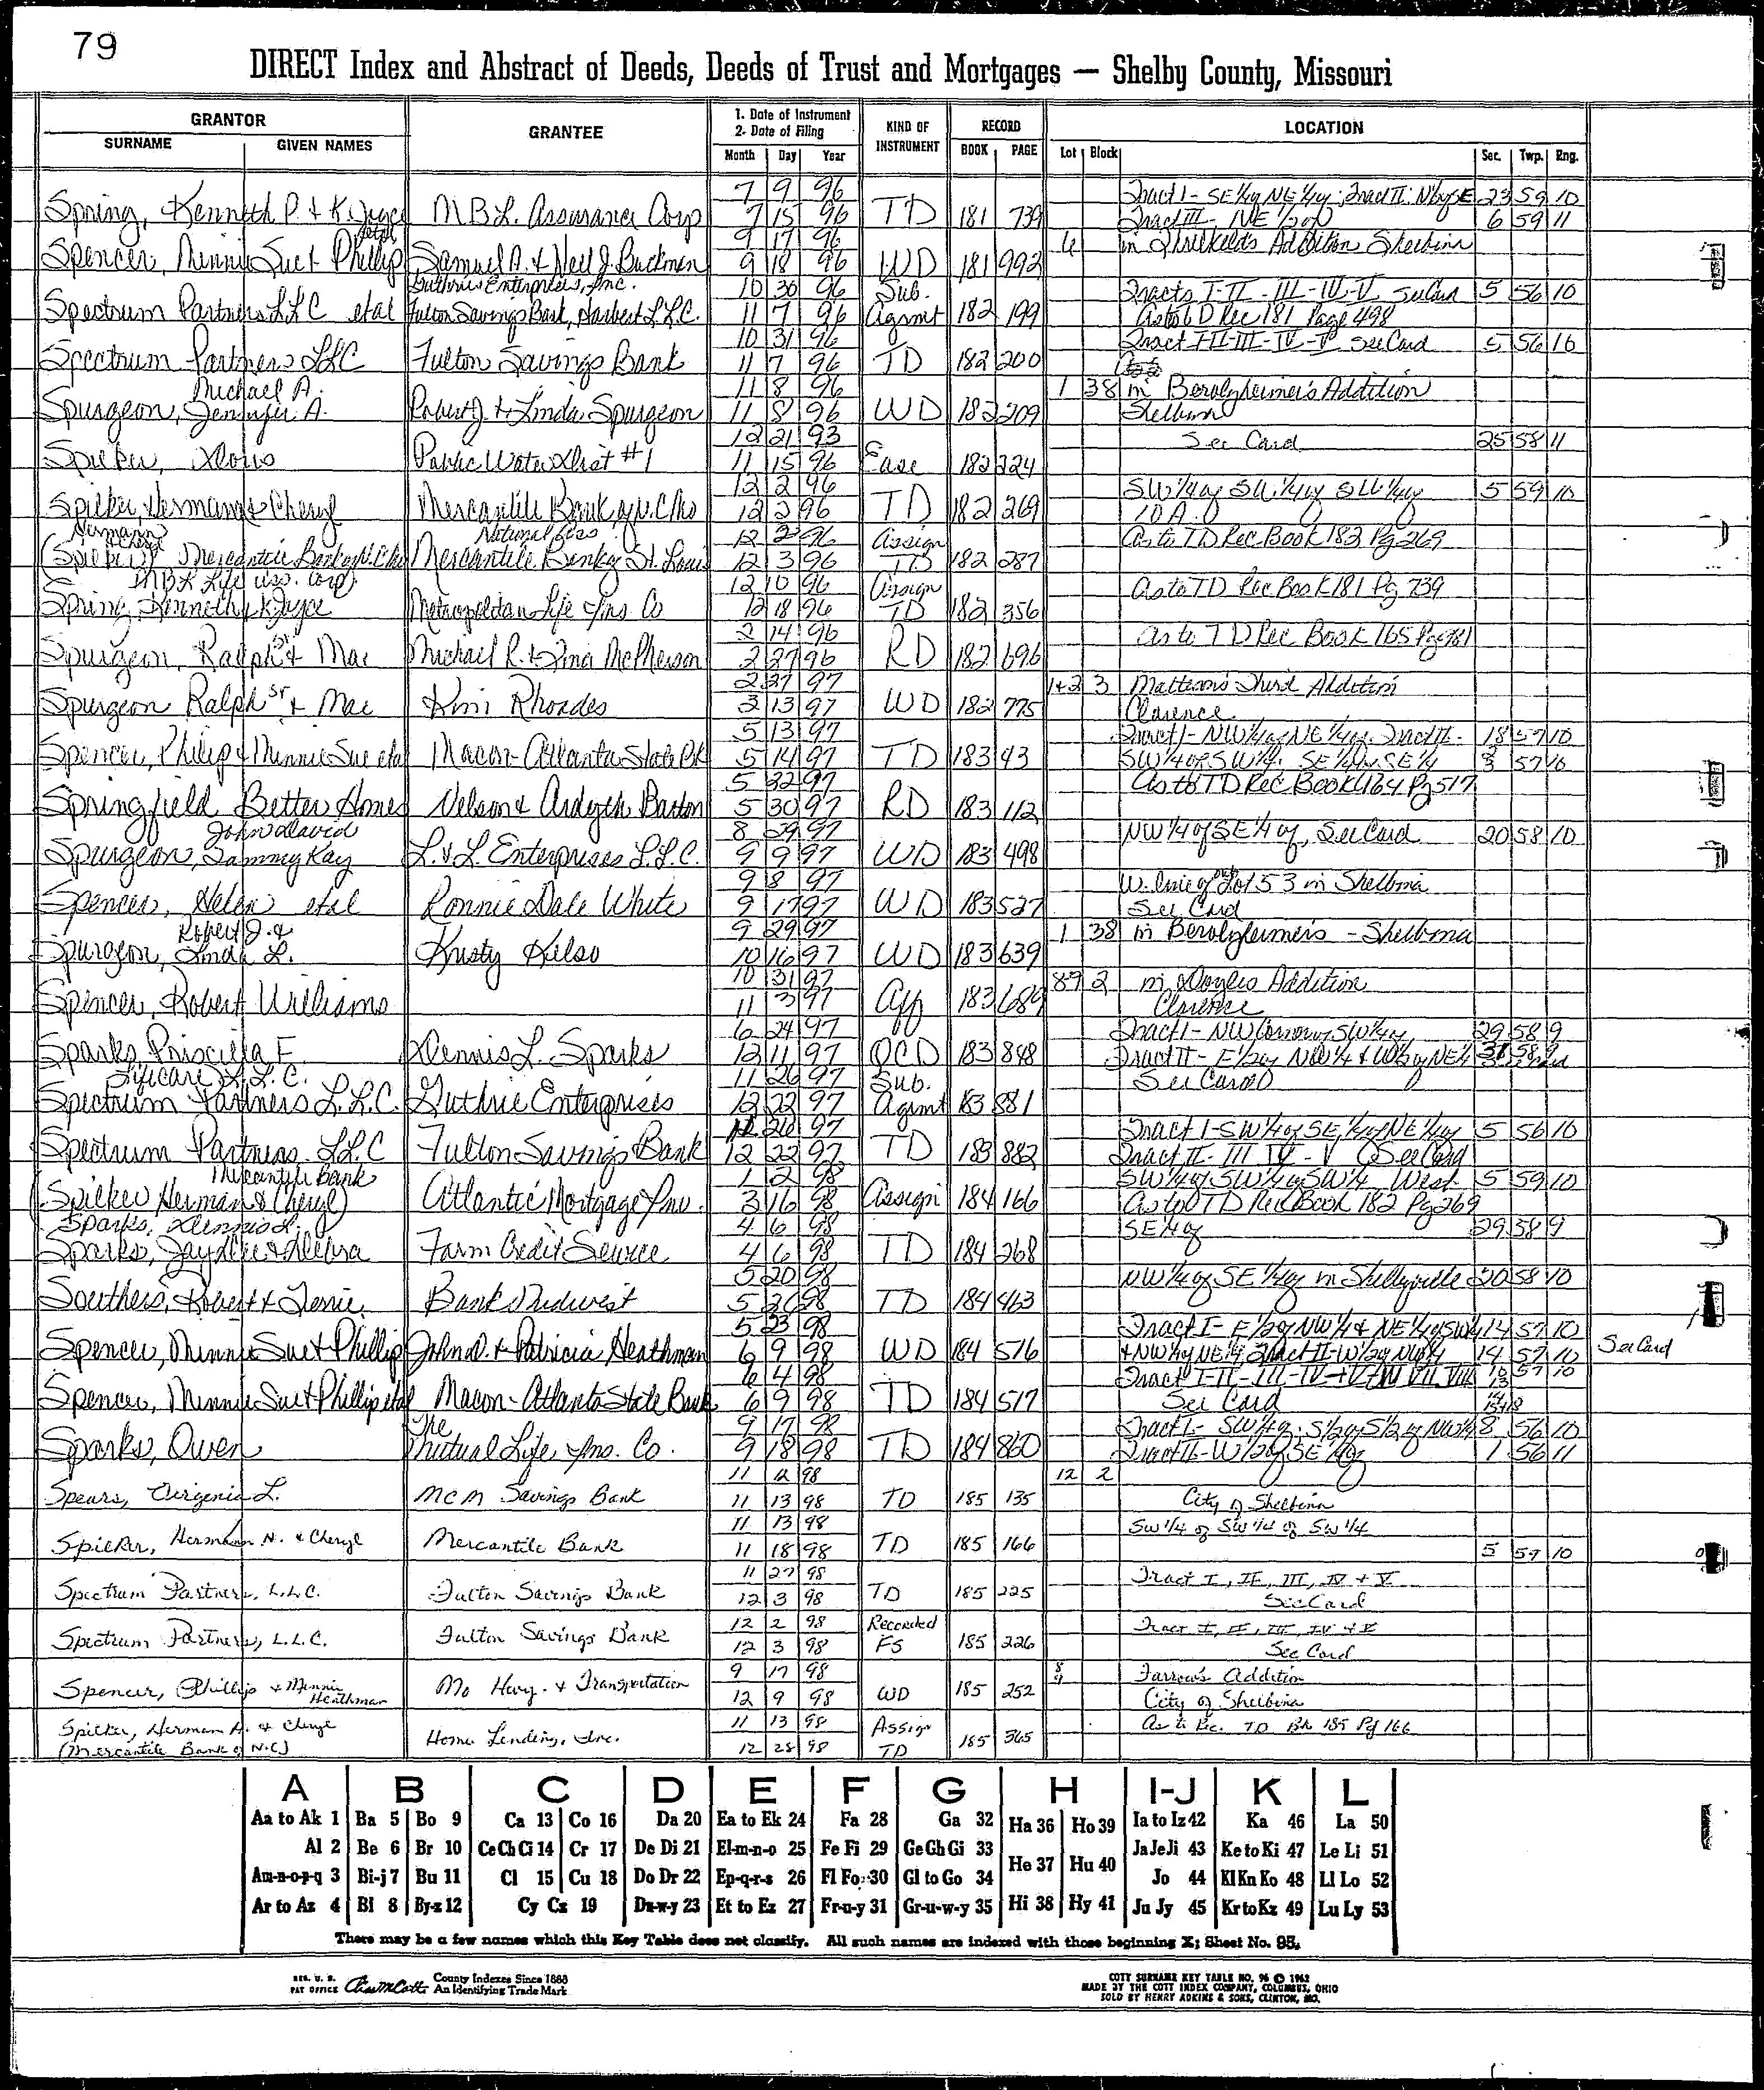 79
DIRECT Index and Abstract of Deeds, Deeds of Trust and Mortgages — Shelby County, Missouri
GRANTOR GRANTEE 1. Date of Instrument 2. Date of Filing KIND OF INSTRUMENT RECORD LOCATION
SURNAME GIVEN NAMES Month Day Year BOOK PAGE Lot Block Sec. Twp. Rng.
7 9 96 Tract I - SE 1/4 NE 1/4; Tract II: 23 59 10
Spring, Kenneth P. & K. Joyce M.B.L. Assurance Corp 7 15 96 TD 181 739 Tract III - NE 1/2 of 6 59 11
9 17 96 4 in Threlkeld's Addition Shelbina
Spencer, Minnie Sue & Phillip Samuel A. & Nell J. Buckman 9 18 96 WD 181 992
Guthrie Enterprises, Inc. 10 30 96 Sub. Tracts I-II-III-IV-V See Card 5 56 10
Spectrum Partners LLC etal Fulton Savings Bank, Harbest L.L.C. 11 7 96 Agmt 182 199 As to TD Rec 181 Page 498
10 31 96 Tract I-II-III-IV-V See Card 5 56 10
Spectrum Partners LLC Fulton Savings Bank 11 7 96 TD 182 200
Michael A. 11 8 96 1 38 in Berolzheimer's Addition
Spurgeon, Jennifer A. Robert J. & Linda Spurgeon 11 8 96 WD 182 209 Shelbina
12 21 93 See Card 25 58 11
Spilker, Doris Public Water Dist #1 11 15 96 Ease 182 224
12 2 96 SW 1/4 of SW 1/4 of SW 1/4 of 5 59 10
Spilker, Herman & Cheryl Mercantile Bank of N.C. Mo 12 2 96 TD 182 269 10 A.
Hermann & Cheryl National Assn 12 2 96 Assign As to TD Rec Book 182 Pg 269
(Spilker) Mercantile Bank of N.C. Mo Mercantile Bank of St. Louis 12 3 96 TD 182 287
MBL Life Ass. Corp 12 10 96 Assign As to TD Rec Book 181 Pg 739
Spring, Kenneth & K Joyce Metropolitan Life Ins Co 12 18 96 TD 182 356
2 14 96 As to TD Rec Book 165 Pg 781
Spurgeon, Ralph Sr & Mae Michael R. & Tina McPherson 2 27 96 RD 182 696
2 27 97 1+2 3 Mattern's Third Addition
Spurgeon Ralph Sr & Mae Kim Rhoades 3 13 97 WD 182 775 Clarence
5 13 97 Tract I - NW 1/4 of NE 1/4 of Tract II - 18 57 10
Spencer, Philip & Minnie Sue etal Macon-Atlanta State Bk 5 14 97 TD 183 43 SW 1/4 of SW 1/4, SE 1/4 of SE 1/4 3 57 10
5 22 97 As to TD Rec Book 164 Pg 517
Springfield Better Homes Nelson & Ardyth Barton 5 30 97 RD 183 112
John David 8 29 97 NW 1/4 of SE 1/4 of, See Card 20 58 10
Spurgeon, Tammy Kay L. & L. Enterprises L.L.C. 9 9 97 WD 183 498
9 8 97 W. line of Out Lot 53 in Shelbina
Spencer, Helen etal Ronnie Dale White 9 17 97 WD 183 527 See Card
Robert J. & 9 29 97 1 38 in Berolzheimer's - Shelbina
Spurgeon, Linda L. Kristy Kelso 10 16 97 WD 183 639
10 31 97 8 9 2 in Doyles Addition
Spencer, Robert Williams 11 3 97 Aff 183 689 Clarence
6 24 97 Tract I - NW Corner of SW 1/4 29 58 9
Sparks, Priscilla F. Dennis L. Sparks 12 11 97 QCD 183 848 Tract II - E 1/2 of NW 1/4 & W 1/2 of NE 1/4
Lifecare L.L.C. 11 26 97 Sub. See Card
Spectrum Partners L.L.C. Guthrie Enterprises 12 22 97 Agrmt 183 881
97 Tract I - SW 1/4 of SE 1/4 of NE 1/4 of 5 56 10
Spectrum Partners LLC Fulton Savings Bank 12 22 97 TD 183 882 Tract II - III IV - V (See Card)
Mercantile Bank 1 2 98 SW 1/4 of SW 1/4 of SW 1/4 West 5 59 10
(Spilker Herman & Cheryl) Atlantic Mortgage Inv. 3 16 98 Assign 184 166 As to TD Rec Book 182 Pg 269
Sparks, Dennis L. 4 6 98 SE 1/4 of 29 58 9
Sparks, Jay Dee & Debra Farm Credit Service 4 6 98 TD 184 268
5 20 98 NW 1/4 of SE 1/4 of in Shelbyville 20 58 10
Southers, Robert & Terrie Bank Midwest 5 26 98 TD 184 463
5 23 98 Tract I - E 1/2 of NW 1/4 & NE 1/4 of SW 1/4 14 57 10
Spencer, Minnie Sue & Phillip John D. & Patricia Heathman 6 9 98 WD 184 516 & NW 1/4 of NE 1/4 Tract II - W 1/2 of NW 1/4 14 57 10 See Card
6 4 98 Tract I-II-III-IV+V+VI VII VIII 57 10
Spencer, Minnie Sue & Phillip etal Macon-Atlanta State Bank 6 9 98 TD 184 517 See Card
The 9 17 98 Tract I - SW 1/4 of S 1/2 of S 1/2 of NW 1/4 8 56 10
Sparks, Owen Mutual Life Ins. Co. 9 18 98 TD 184 860 Tract II - W 1/2 of SE 1/4 of 1 56 11
11 12 98 12 2
Spears, Virginia L. MCM Savings Bank 11 13 98 TD 185 135 City of Shelbina
11 13 98 SW 1/4 of SW 1/4 of SW 1/4
Spilker, Hermann N. & Cheryl Mercantile Bank 11 18 98 TD 185 166 5 59 10
11 27 98 Tract I, II, III, IV + V
Spectrum Partners, L.L.C. Fulton Savings Bank 12 3 98 TD 185 225 See Card
12 2 98 Recorded Tract I, II, III, IV + V
Spectrum Partners, L.L.C. Fulton Savings Bank 12 3 98 FS 185 226 See Card
9 17 98 8 9 Farrow's Addition
Spencer, Phillip & Minnie Heathman Mo Hwy. & Transportation 12 9 98 WD 185 252 City of Shelbina
Spilker, Herman A. & Cheryl 11 13 98 Assign As to Rec. TD Bk 185 Pg 166
(Mercantile Bank of N.C.) Home Lending, Inc. 12 28 98 TD 185 365
A B C D E F G H I-J K L
Aa to Ak 1 Ba 5 Bo 9 Ca 13 Co 16 Da 20 Ea to Ek 24 Fa 28 Ga 32 Ha 36 Ho 39 Ia to Iz 42 Ka 46 La 50
Al 2 Be 6 Br 10 Ce Ch Ci 14 Cr 17 De Di 21 El-m-n-o 25 Fe Fi 29 Ge Gh Gi 33 He 37 Hu 40 Ja Je Ji 43 Ke to Ki 47 Le Li 51
Am-n-o-p-q 3 Bi-j 7 Bu 11 Cl 15 Cu 18 Do Dr 22 Ep-q-r-s 26 Fl Fo 30 Gl to Go 34 Jo 44 Kl Kn Ko 48 Ll Lo 52
Ar to Az 4 Bl 8 By-z 12 Cy Cz 19 Du-w-y 23 Et to Ez 27 Fr-u-y 31 Gr-u-w-y 35 Hi 38 Hy 41 Ju Jy 45 Kr to Kz 49 Lu Ly 53
There may be a few names which this Key Table does not classify. All such names are indexed with those beginning X; Sheet No. 95.
REG. U. S. PAT OFFICE County Indexes Since 1888 An Identifying Trade Mark
COTT SURNAME KEY TABLE NO. 96 © 1962
MADE BY THE COTT INDEX COMPANY, COLUMBUS, OHIO
SOLD BY HENRY ADKINS & SONS, CLINTON, MO.